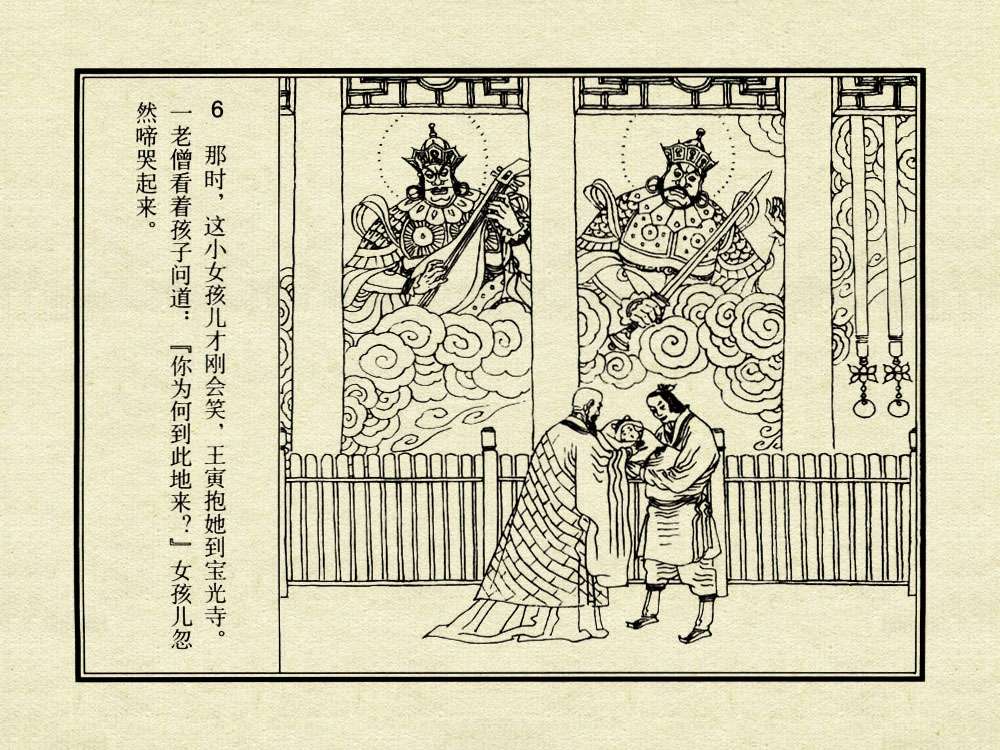 6 那时，这小女孩儿才刚会笑，王寅抱她到宝光寺。
一老僧看着孩子问道：『你为何到此地来？』女孩儿忽
然啼哭起来。